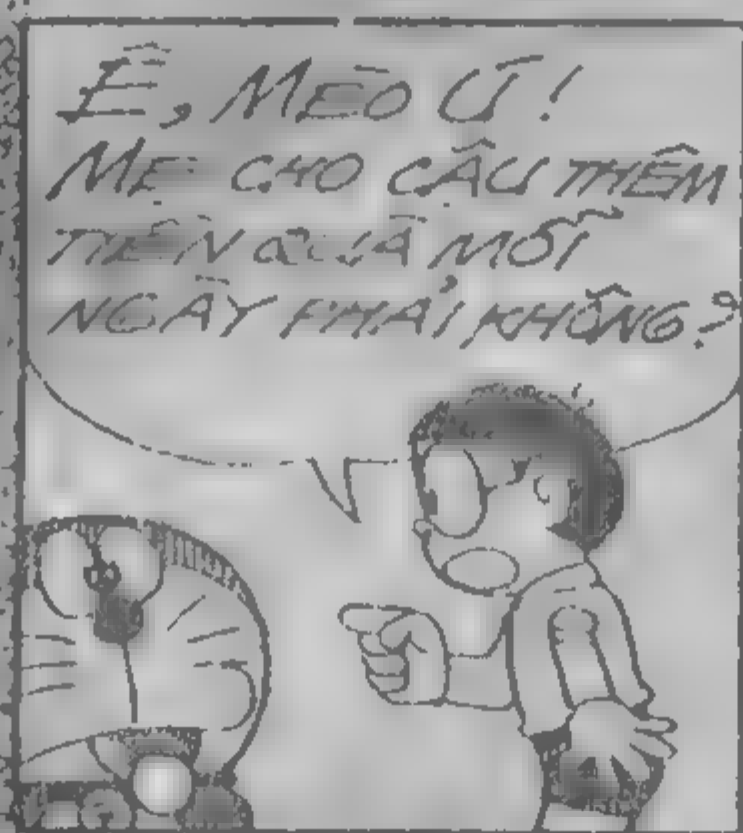 Ê, MÈO Ú!
MẸ CHO CẬU THÊM
TIỀN QUÀ MỖI
NGÀY PHẢI KHÔNG?